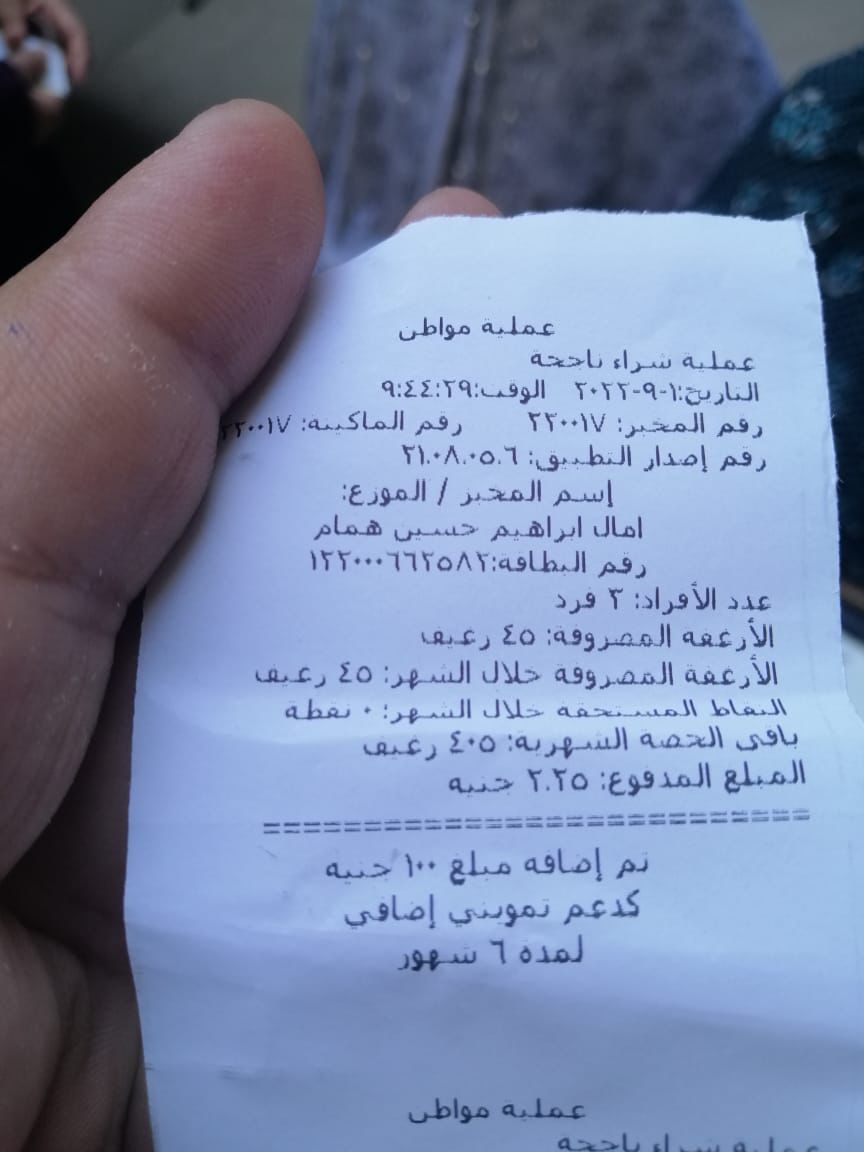 عملية مواطن
عملية شراء ناجحة
التاريخ:١-٩-٢٠٢٢ الوقت:٩:٤٤:٢٩
رقم المخبز: ٢٢٠٠١٧ رقم الماكينة: ٢٢٠٠١٧
رقم إصدار التطبيق: ٢١.٠٨.٠٥.٦
إسم المخبز / الموزع:
امال ابراهيم حسين همام
رقم البطاقة:١٢٢٠٠٠٦٦٢٥٨٢
عدد الأفراد: ٣ فرد
الأرغفة المصروفة: ٤٥ رغيف
الأرغفة المصروفة خلال الشهر: ٤٥ رغيف
النقاط المستحقة خلال الشهر: ٠ نقطة
باقى الحصة الشهرية: ٤٠٥ رغيف
المبلغ المدفوع: ٢.٢٥ جنيه
================================
تم إضافه مبلغ ١٠٠ جنيه
كدعم تمويني إضافي
لمدة ٦ شهور
عملية مواطن
عملية شراء ناجحة